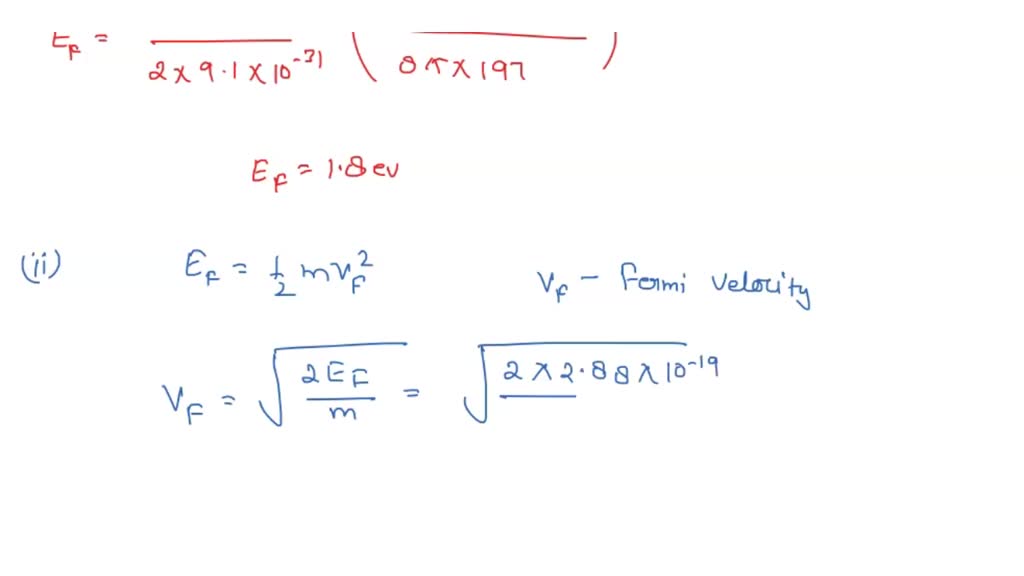 E_F =
2 × 9.1 × 10^-31 ( 8π × 197 )
E_F = 1.8 ev
(ii) E_F = 1/2 m v_F^2 v_F - Fermi velocity
V_F = √(2 E_F / m) = √(2 × 2.88 × 10^-19